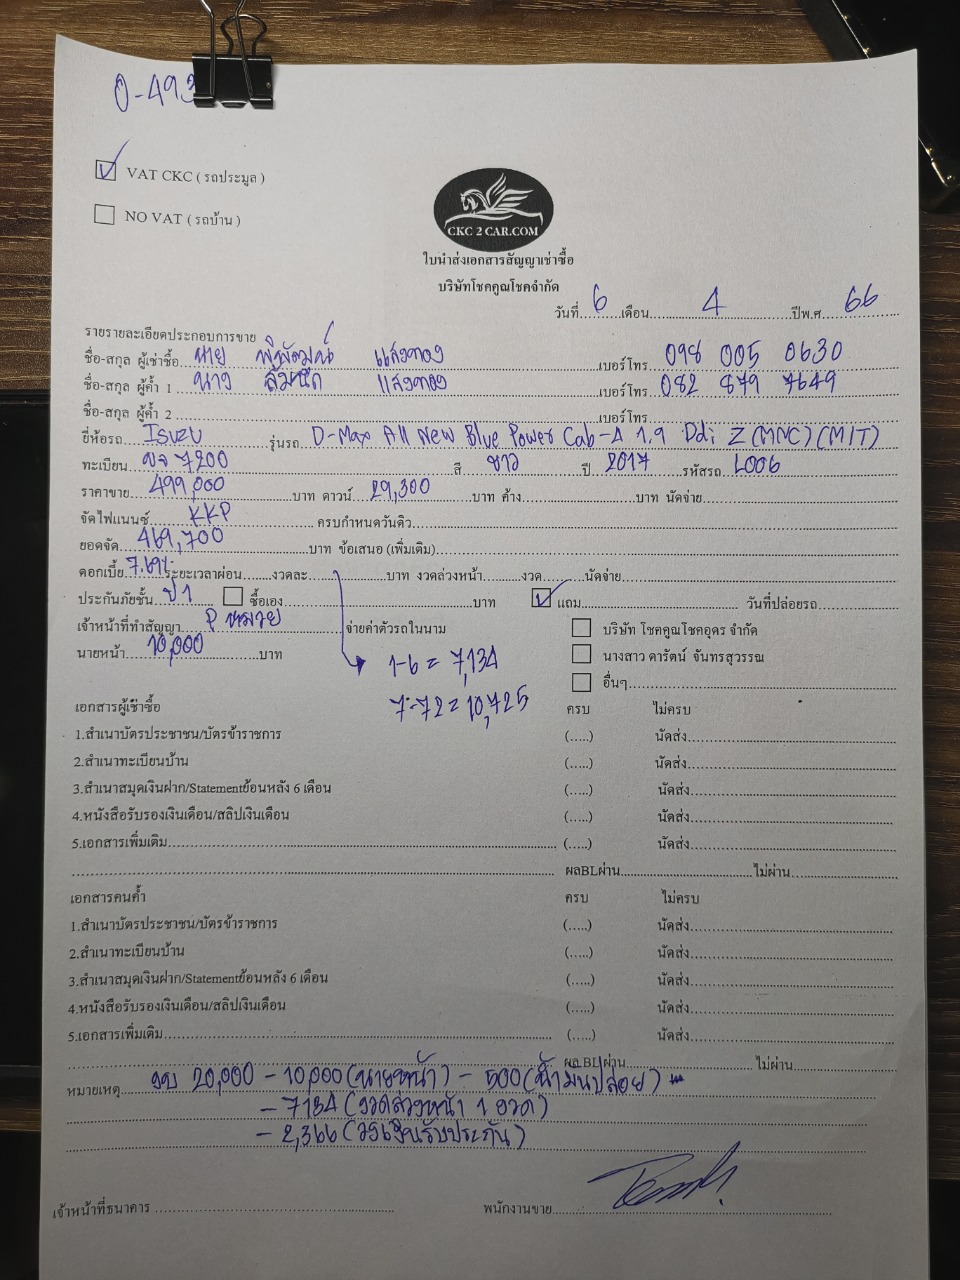 0-493
☑ VAT CKC ( รถประมูล )
☐ NO VAT ( รถบ้าน )
CKC 2 CAR.COM
ใบนำส่งเอกสารสัญญาเช่าซื้อ
บริษัทโชคคูณโชคจำกัด
วันที่ 6 เดือน 4 ปีพ.ศ 66
รายรายละเอียดประกอบการขาย
ชื่อ-สกุล ผู้เช่าซื้อ นาย พิพัฒน์ แสงทอง เบอร์โทร 098 005 0630
ชื่อ-สกุล ผู้ค้ำ 1 นาง แสงทอง เบอร์โทร 082 879 7649
ชื่อ-สกุล ผู้ค้ำ 2 เบอร์โทร
ยี่ห้อรถ ISUZU รุ่นรถ D-Max All New Blue Power Cab-4 1.9 Ddi Z (MNC) (MIT)
ทะเบียน 7200 สี ขาว ปี 2017 รหัสรถ L006
ราคาขาย 499,000 บาท ดาวน์ 29,300 บาท ค้าง บาท นัดจ่าย
จัดไฟแนนซ์ KKP ครบกำหนดวันดิว
ยอดจัด 469,700 บาท ข้อเสนอ (เพิ่มเติม)
ดอกเบี้ย 7.69% ระยะเวลาผ่อน งวดละ บาท งวดล่วงหน้า งวด นัดจ่าย
ประกันภัยชั้น ป1 ☐ ซื้อเอง บาท ☑ แถม วันที่ปล่อยรถ
เจ้าหน้าที่ทำสัญญา P หมวย จ่ายค่าตัวรถในนาม ☐ บริษัท โชคคูณโชคอุดร จำกัด
นายหน้า 10,000 บาท ☐ นางสาว ดารัตน์ จันทรสุวรรณ
1-6 = 7,134
☐ อื่นๆ
7-72 = 10,725
เอกสารผู้เช่าซื้อ ครบ ไม่ครบ
1.สำเนาบัตรประชาชน/บัตรข้าราชการ (.....) นัดส่ง
2.สำเนาทะเบียนบ้าน (.....) นัดส่ง
3.สำเนาสมุดเงินฝาก/Statementย้อนหลัง 6 เดือน (.....) นัดส่ง
4.หนังสือรับรองเงินเดือน/สลิปเงินเดือน (.....) นัดส่ง
5.เอกสารเพิ่มเติม (.....) นัดส่ง
ผลBLผ่าน ไม่ผ่าน
เอกสารคนค้ำ ครบ ไม่ครบ
1.สำเนาบัตรประชาชน/บัตรข้าราชการ (.....) นัดส่ง
2.สำเนาทะเบียนบ้าน (.....) นัดส่ง
3.สำเนาสมุดเงินฝาก/Statementย้อนหลัง 6 เดือน (.....) นัดส่ง
4.หนังสือรับรองเงินเดือน/สลิปเงินเดือน (.....) นัดส่ง
5.เอกสารเพิ่มเติม (.....) นัดส่ง
ผล BLผ่าน ไม่ผ่าน
หมายเหตุ งบ 20,000 - 10,000 (นายหน้า) - 500 (น้ำมันปล่อย)
- 7134 (งวดล่วงหน้า 1 งวด)
- 2,366 (วางเงินรับประกัน)
เจ้าหน้าที่ธนาคาร พนักงานขาย